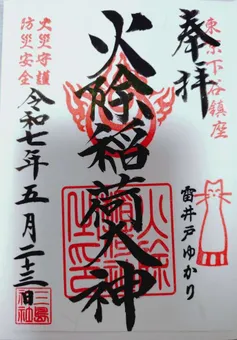 東京下谷鎮座
奉拝
雷井戸ゆかり
火除稲荷大神
火災守護
防災安全
令和七年五月二十三日